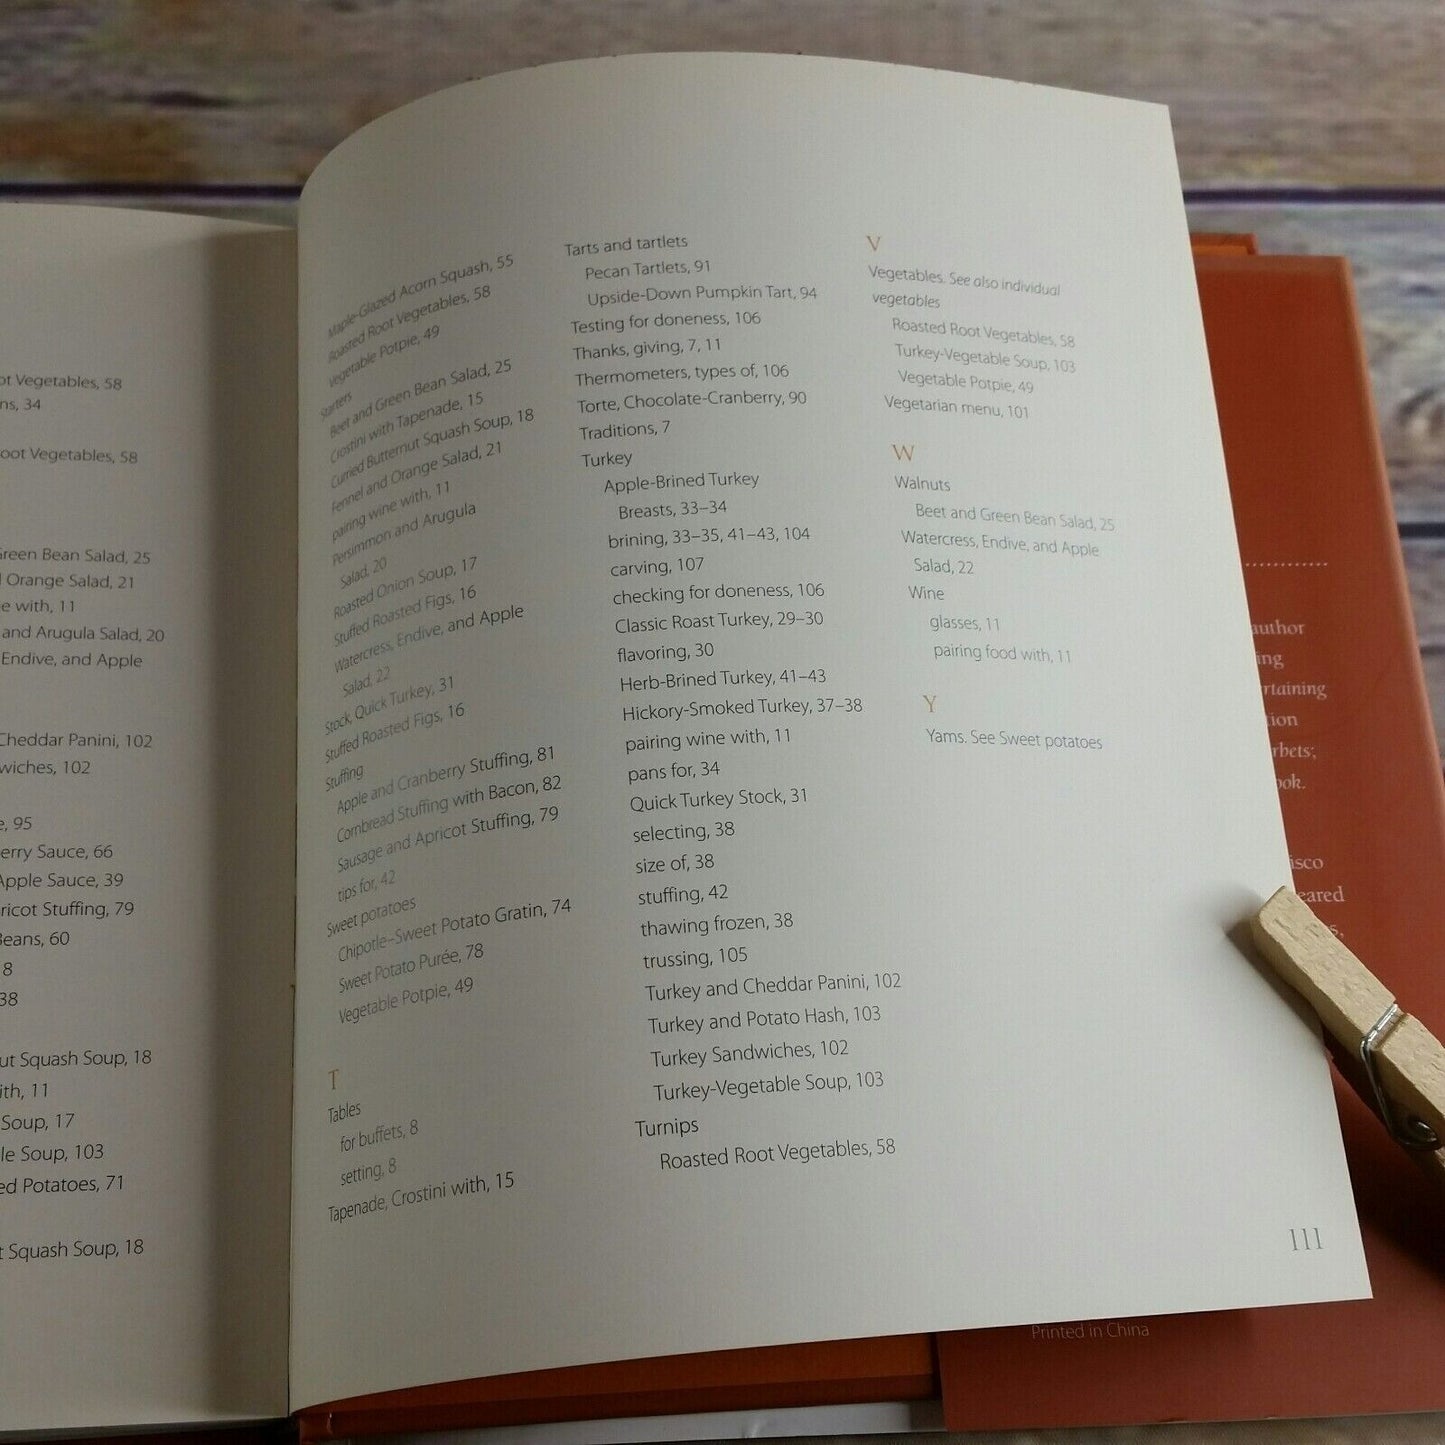 ot Vegetables, 58
ns, 34
oot Vegetables, 58
Green Bean Salad, 25
l Orange Salad, 21
e with, 11
and Arugula Salad, 20
Endive, and Apple
Cheddar Panini, 102
wiches, 102
e, 95
erry Sauce, 66
Apple Sauce, 39
ricot Stuffing, 79
Beans, 60
8
38
ut Squash Soup, 18
ith, 11
Soup, 17
le Soup, 103
ed Potatoes, 71
t Squash Soup, 18
Maple-Glazed Acorn Squash, 55
Roasted Root Vegetables, 58
Vegetable Potpie, 49
Starters
Beet and Green Bean Salad, 25
Crostini with Tapenade, 15
Curried Butternut Squash Soup, 18
Fennel and Orange Salad, 21
pairing wine with, 11
Persimmon and Arugula
Salad, 20
Roasted Onion Soup, 17
Stuffed Roasted Figs, 16
Watercress, Endive, and Apple
Salad, 22
Stock, Quick Turkey, 31
Stuffed Roasted Figs, 16
Stuffing
Apple and Cranberry Stuffing, 81
Cornbread Stuffing with Bacon, 82
Sausage and Apricot Stuffing, 79
tips for, 42
Sweet potatoes
Chipotle–Sweet Potato Gratin, 74
Sweet Potato Purée, 78
Vegetable Potpie, 49
T
Tables
for buffets, 8
setting, 8
Tapenade, Crostini with, 15
Tarts and tartlets
Pecan Tartlets, 91
Upside-Down Pumpkin Tart, 94
Testing for doneness, 106
Thanks, giving, 7, 11
Thermometers, types of, 106
Torte, Chocolate-Cranberry, 90
Traditions, 7
Turkey
Apple-Brined Turkey
Breasts, 33–34
brining, 33–35, 41–43, 104
carving, 107
checking for doneness, 106
Classic Roast Turkey, 29–30
flavoring, 30
Herb-Brined Turkey, 41–43
Hickory-Smoked Turkey, 37–38
pairing wine with, 11
pans for, 34
Quick Turkey Stock, 31
selecting, 38
size of, 38
stuffing, 42
thawing frozen, 38
trussing, 105
Turkey and Cheddar Panini, 102
Turkey and Potato Hash, 103
Turkey Sandwiches, 102
Turkey-Vegetable Soup, 103
Turnips
Roasted Root Vegetables, 58
V
Vegetables. See also individual
vegetables
Roasted Root Vegetables, 58
Turkey-Vegetable Soup, 103
Vegetable Potpie, 49
Vegetarian menu, 101
W
Walnuts
Beet and Green Bean Salad, 25
Watercress, Endive, and Apple
Salad, 22
Wine
glasses, 11
pairing food with, 11
Y
Yams. See Sweet potatoes
111
author
ing
rtaining
tion
rbets;
ook.
isco
eared
s,
Printed in China